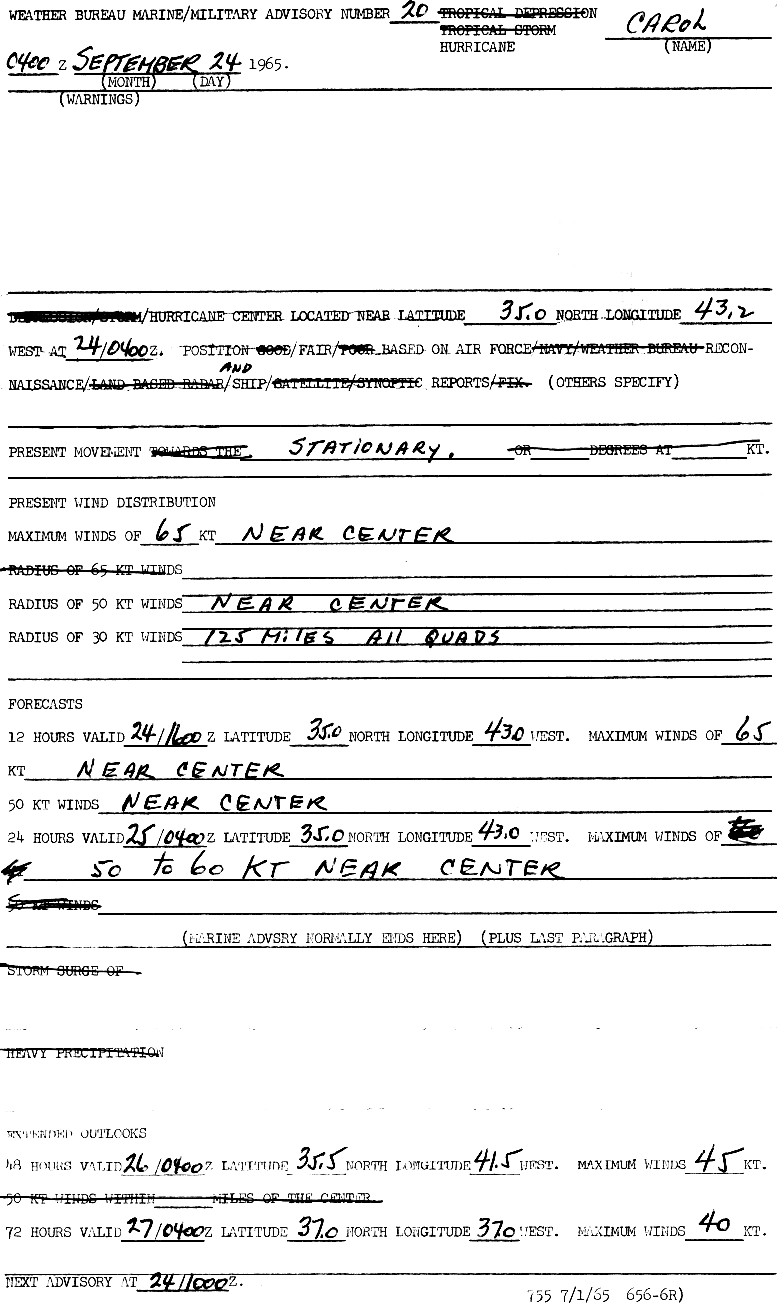 WEATHER BUREAU MARINE/MILITARY ADVISORY NUMBER 20 TROPICAL DEPRESSION CAROL
TROPICAL STORM
HURRICANE (NAME)
0400 Z SEPTEMBER 24 1965.
(MONTH) (DAY)
(WARNINGS)
DEPRESSION/STORM/HURRICANE CENTER LOCATED NEAR LATITUDE 35.0 NORTH LONGITUDE 43.2
WEST AT 24/0400 Z. POSITION GOOD/FAIR/POOR BASED ON AIR FORCE/NAVY/WEATHER BUREAU RECON-
AND
NAISSANCE/LAND BASED RADAR/SHIP/SATELLITE/SYNOPTIC REPORTS/FIX. (OTHERS SPECIFY)
PRESENT MOVEMENT TOWARDS THE STATIONARY. OR DEGREES AT KT.
PRESENT WIND DISTRIBUTION
MAXIMUM WINDS OF 65 KT NEAR CENTER
RADIUS OF 65 KT WINDS
RADIUS OF 50 KT WINDS NEAR CENTER
RADIUS OF 30 KT WINDS 125 MILES All QUADS
FORECASTS
12 HOURS VALID 24/1600 Z LATITUDE 35.0 NORTH LONGITUDE 43.0 WEST. MAXIMUM WINDS OF 65
KT NEAR CENTER
50 KT WINDS NEAR CENTER
24 HOURS VALID 25/0400 Z LATITUDE 35.0 NORTH LONGITUDE 43.0 WEST. MAXIMUM WINDS OF
50 to 60 KT NEAR CENTER
50 KT WINDS
(MARINE ADVSRY NORMALLY ENDS HERE) (PLUS LAST PARAGRAPH)
STORM SURGE OF
HEAVY PRECIPITATION
EXTENDED OUTLOOKS
48 HOURS VALID 26/0400 Z LATITUDE 35.5 NORTH LONGITUDE 41.5 WEST. MAXIMUM WINDS 45 KT.
50 KT WINDS WITHIN MILES OF THE CENTER.
72 HOURS VALID 27/0400 Z LATITUDE 37.0 NORTH LONGITUDE 37.0 WEST. MAXIMUM WINDS 40 KT.
NEXT ADVISORY AT 24/1000 Z.
755 7/1/65 656-6R)